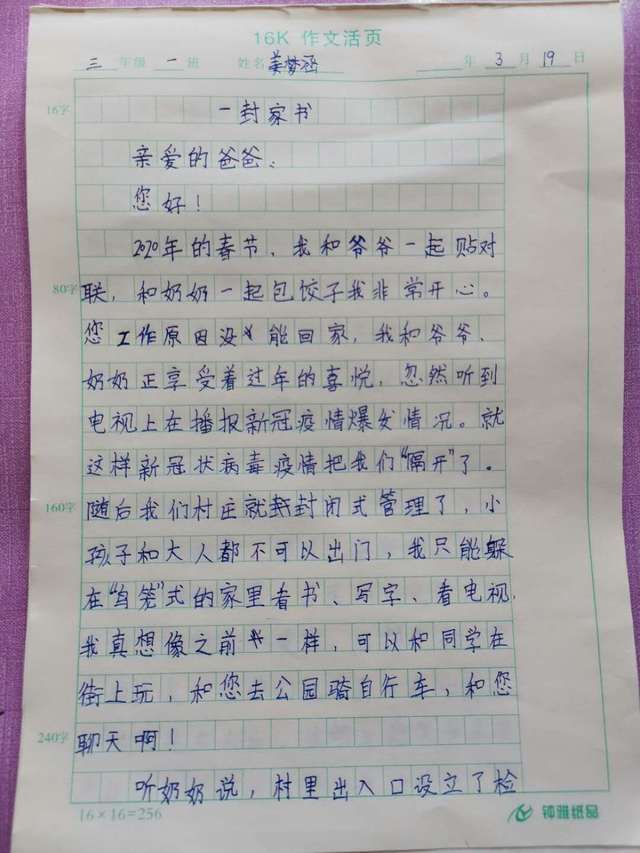 16K 作文活页
三 年级 一 班 姓名 姜梦涵 年 3 月 19 日
16字
一封家书
亲爱的爸爸、
您好！
2020年的春节、我和爷爷一起贴对
80字
联，和奶奶一起包饺子我非常开心。
您工作原因没能回家，我和爷爷、
奶奶正享受着过年的喜悦，忽然听到
电视上在播报新冠疫情爆发情况。就
这样新冠状病毒疫情把我们“隔开”了。
160字
随后我们村庄就封闭式管理了，小
孩子和大人都不可以出门，我只能躲
在“鸟笼”式的家里看书、写字、看电视.
我真想像之前一样，可以和同学在
街上玩，和您去公园骑自行车，和您
240字
聊天啊！
听奶奶说，村里出入口设立了检
16×16=256
钟雅纸品